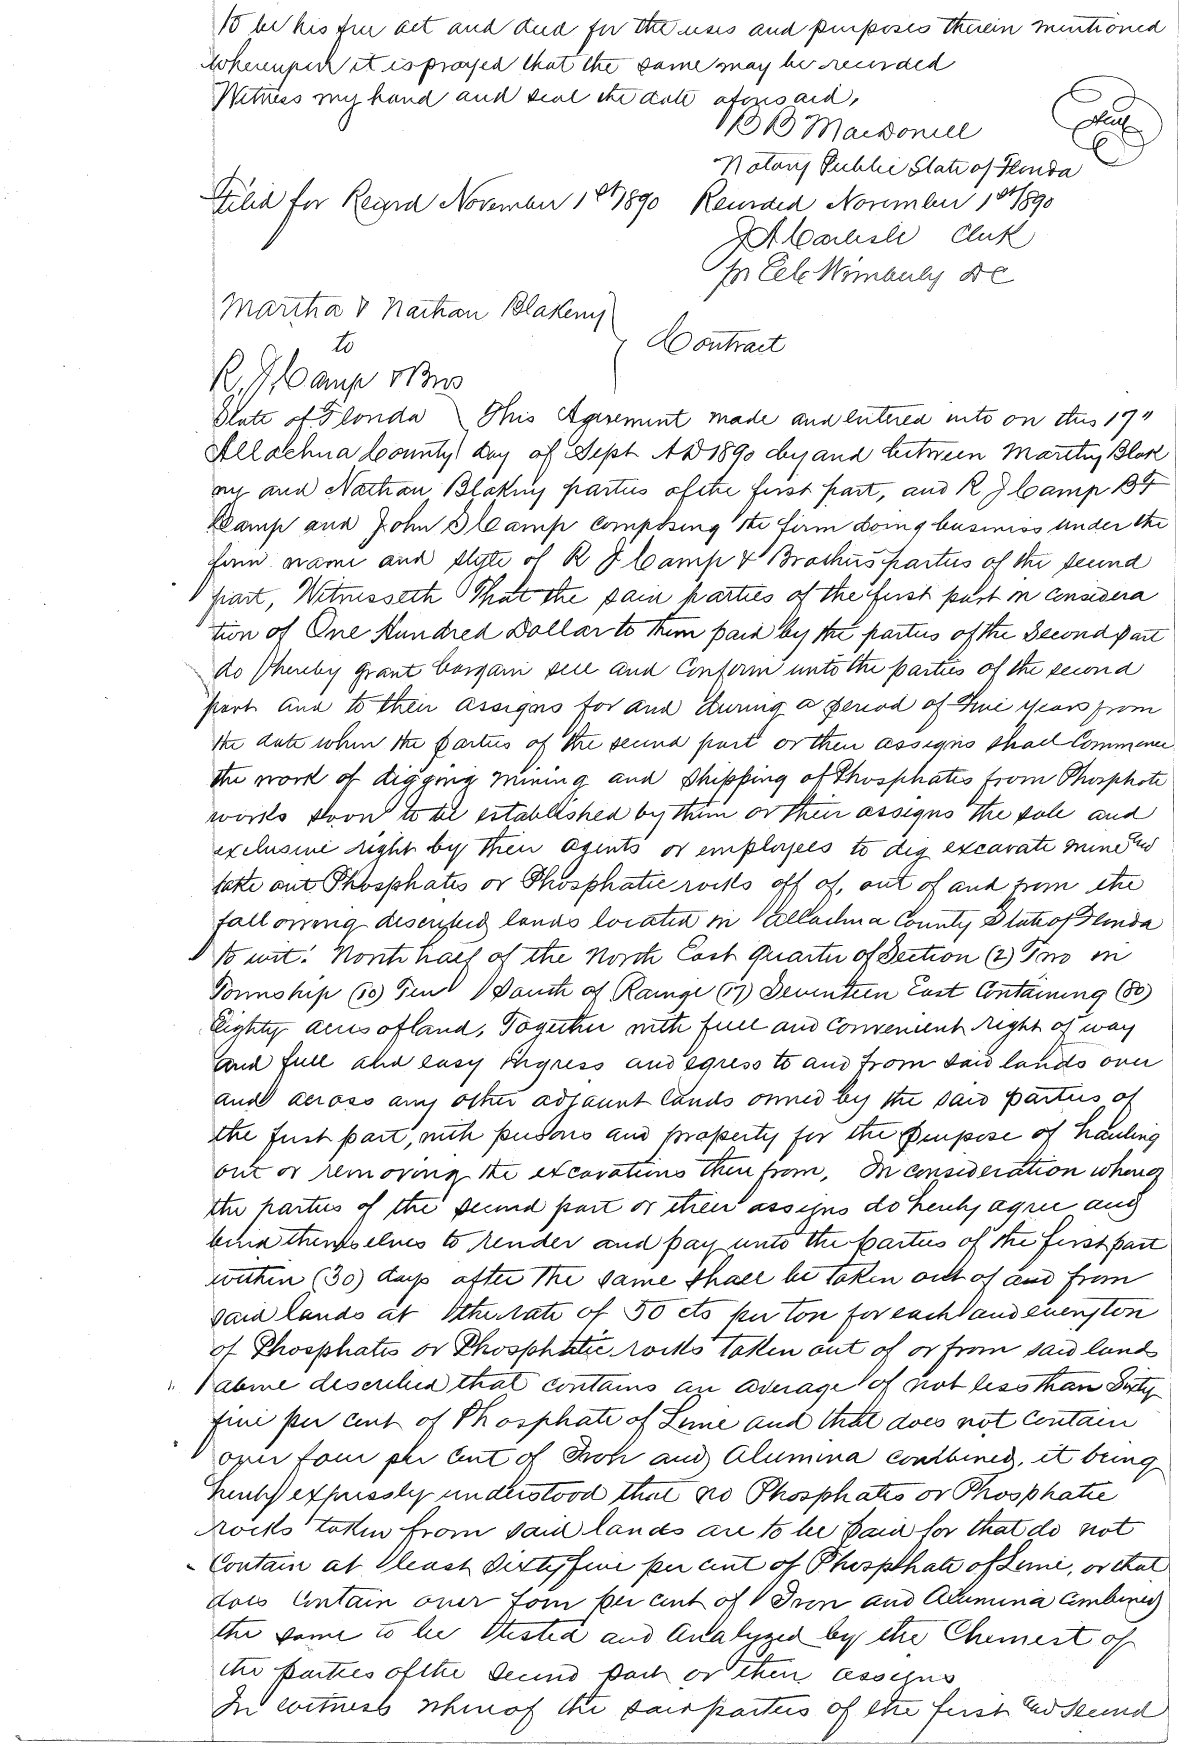 to be his free act and deed for the uses and purposes therein mentioned
whereupon it is prayed that the same may be recorded
Witness my hand and seal the date aforesaid,
B B MacDonell
Seal
Notary Public State of Florida
Filed for Record November 1st 1890 Recorded November 1st 1890
J A Carlisle Clerk
pr Wimberly DC
Martha & Nathan Blakeny
to
Contract
R. J. Camp & Bros
State of Florida This Agreement made and entered into on this 17"
Allachua County day of Sept AD 1890 by and between Marthy Blak
ny and Nathan Blakny parties of the first part, and R J Camp B F
Camp and John S Camp composing the firm doing business under the
firm name and style of R J Camp & Brothers parties of the second
part, Witnesseth That the said parties of the first part in considera
tion of One Hundred Dollar to them paid by the parties of the Second part
do hereby grant bargain sell and confirm unto the parties of the second
part and to their assigns for and during a period of Five years from
the date when the parties of the second part or their assigns shall Commence
the work of digging mining and shipping of Phosphates from Phosphate
works soon to be established by them or their assigns the sole and
exclusive right by their agents or employees to dig excavate mine and
take out Phosphates or Phosphatic rocks off of, out of and from the
following described lands located in Allachua County State of Florida
to wit: North half of the North East quarter of Section (2) Two in
Township (10) Ten South of Rainge (17) Seventeen East Containing (80)
Eighty acres of land, Together with full and convenient right of way
and full and easy ingress and egress to and from said lands over
and across any other adjacent lands owned by the said parties of
the first part, with persons and property for the purpose of hauling
out or removing the excavations therefrom, In consideration whereof
the parties of the second part or their assigns do hereby agree and
bind themselves to render and pay unto the parties of the first part
within (30) days after the same shall be taken out of and from
said lands at the rate of 50 cts per ton for each and every ton
of Phosphates or Phosphatic rocks taken out of or from said lands
above described that contains an average of not less than Sixty
five per cent of Phosphate of Lime and that does not contain
over four per cent of Iron and Alumina combined, it being
hereby expressly understood that no Phosphates or Phosphatic
rocks taken from said lands are to be paid for that do not
Contain at least sixty five per cent of Phosphate of Lime, or that
does contain over four per cent of Iron and Alumina Combined
the same to be tested and analyzed by the Chemest of
the parties of the second part or their assigns
In witness whereof the said parties of the first and second